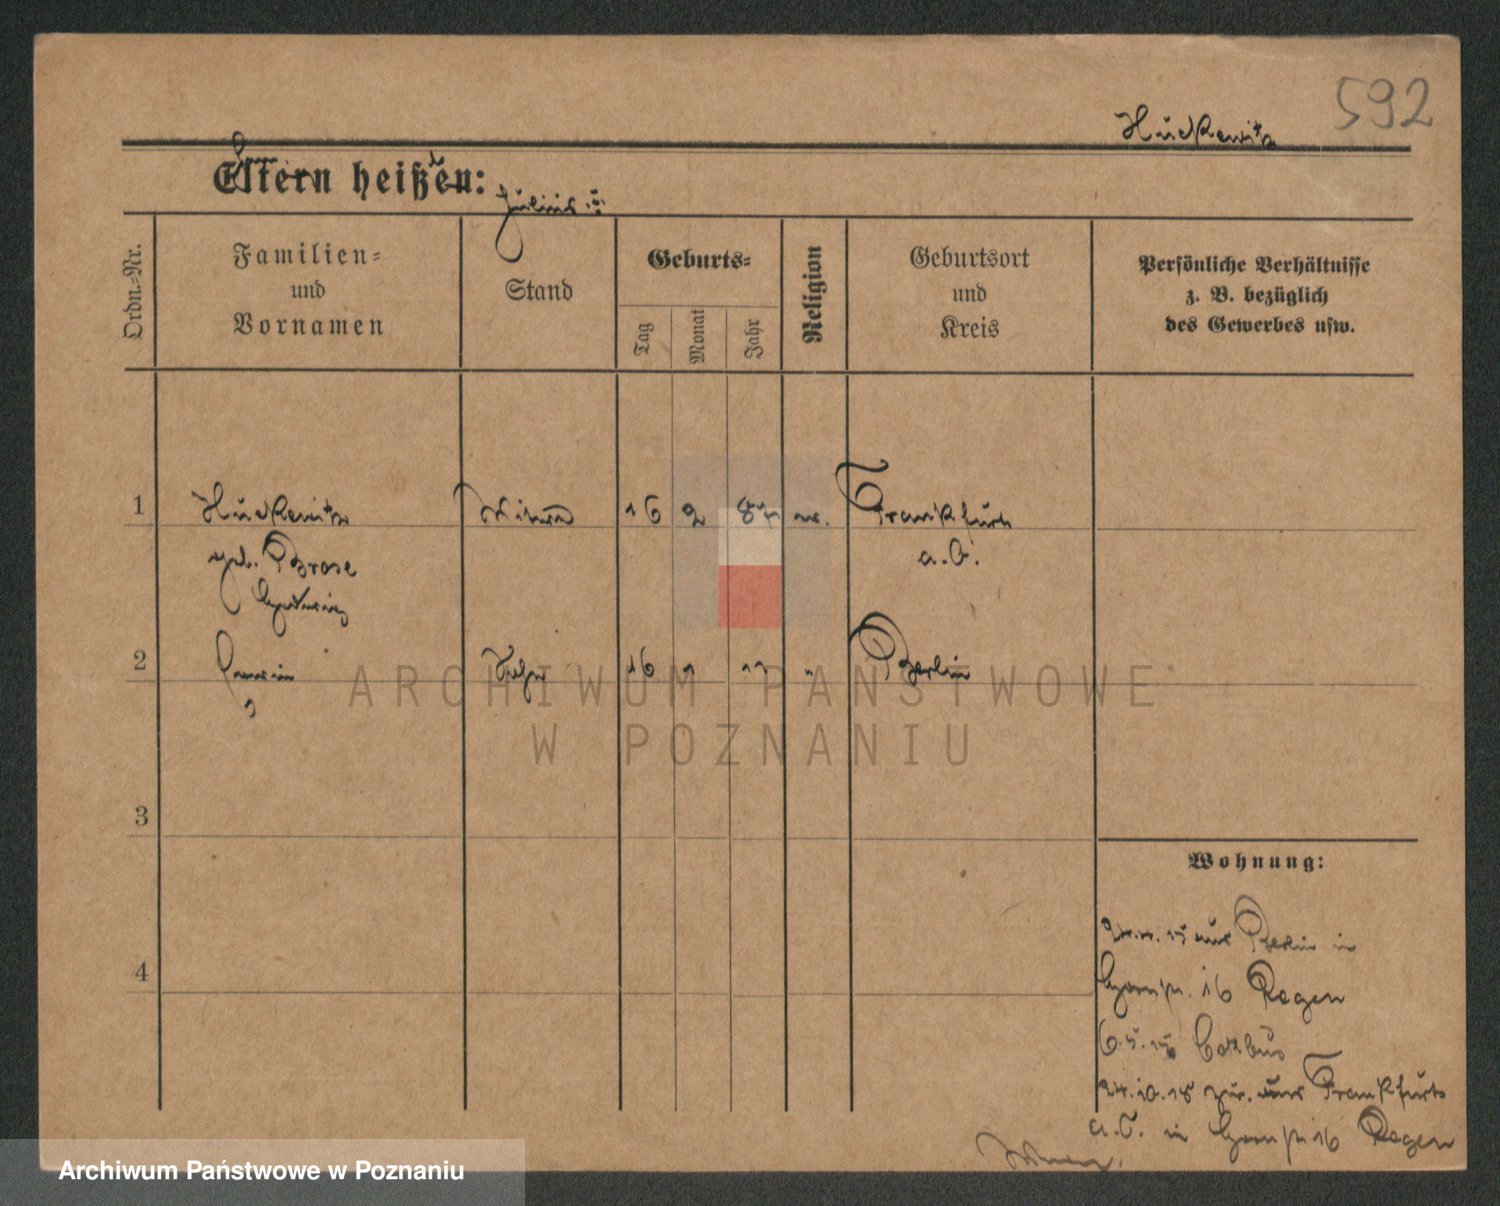 592
Huckewitz
Eltern heißen:
Julius
Ordn.=Nr.
Familien=
und
Vornamen
Stand
Geburts=
Tag
Monat
Jahr
Religion
Geburtsort
und
Kreis
Persönliche Verhältnisse
z. B. bezüglich
des Gewerbes usw.
1 Huckewitz 16 2 87 Frankfurt
geb. Brose a.O.
Hedwig
2 16 11 " Berlin
3
4
ARCHIWUM PAŃSTWOWE
W POZNANIU
Wohnung:
aus Berlin in
16 Regen
6.5.15 Cottbus
24.10.18 zur. aus Frankfurt
a.O. in 16 Regen
Archiwum Państwowe w Poznaniu